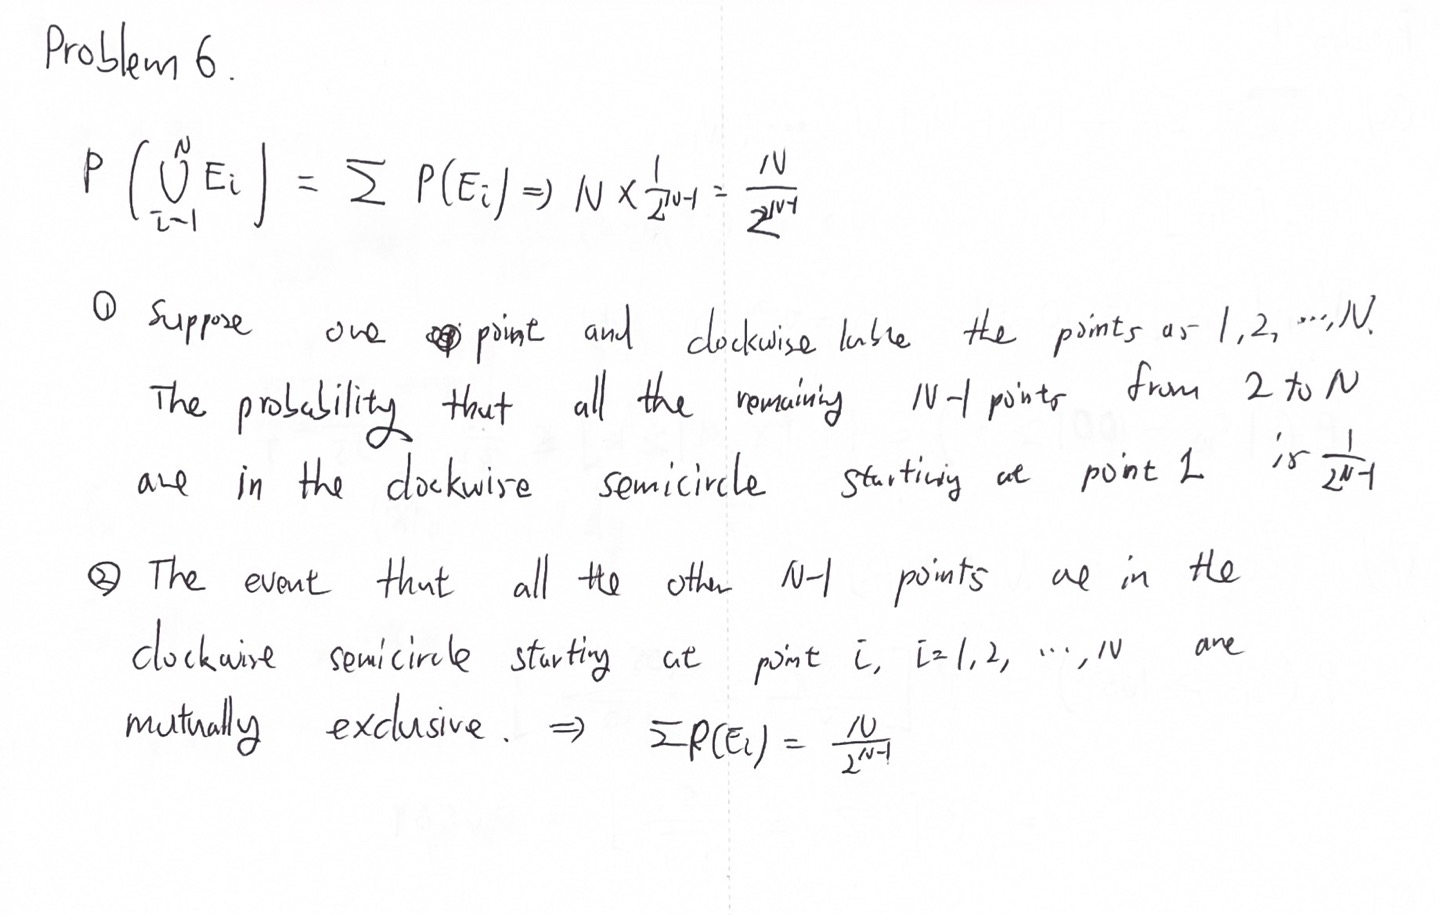 Problem 6.
P(⋃_{i=1}^{N} E_i) = Σ P(E_i) ⇒ N × 1/2^{N-1} = N/2^{N-1}
① Suppose one point and clockwise lable the points as 1, 2, ..., N.
The probability that all the remaining N-1 points from 2 to N
are in the clockwise semicircle starting at point 1 is 1/2^{N-1}
② The event that all the other N-1 points are in the
clockwise semicircle starting at point i, i=1, 2, ..., N are
mutually exclusive. ⇒ ΣP(E_i) = N/2^{N-1}